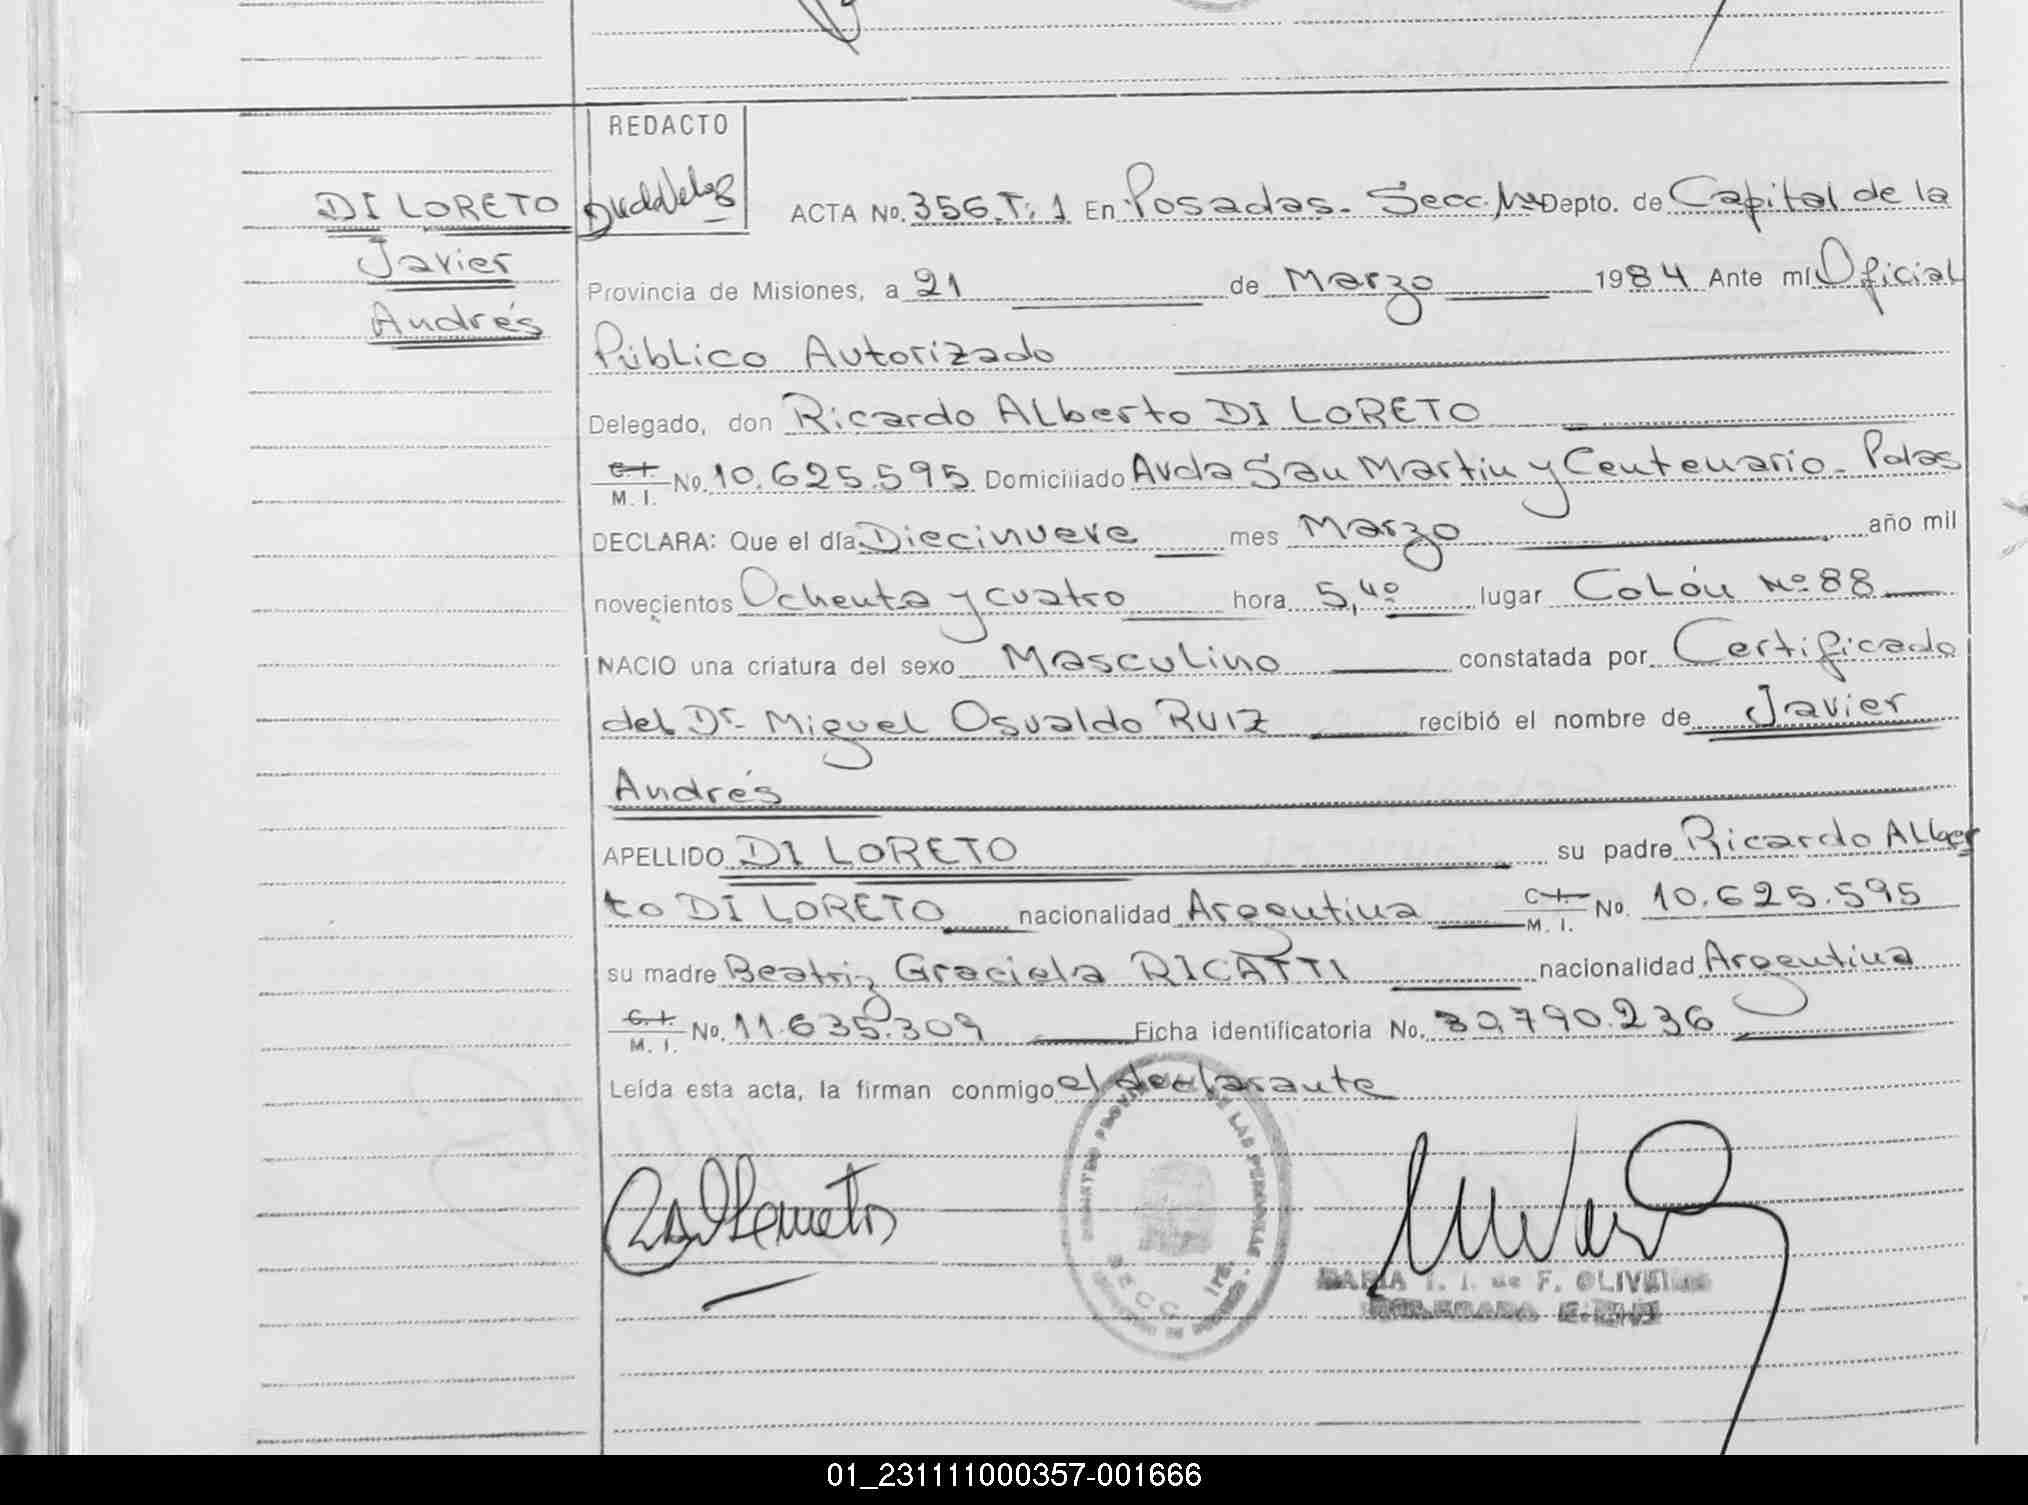 REDACTO
DI LORETO
Javier
Andrés
ACTA No. 356.T:1 En Posadas. Secc. 1ra Depto. de Capital de la
Provincia de Misiones, a 21 de Marzo 1984 Ante mí Oficial
Público Autorizado
Delegado, don Ricardo Alberto DI LORETO
C.I. M. I. No. 10.625.595 Domiciliado Avda San Martin y Centenario - Pdas
DECLARA: Que el día Diecinueve mes Marzo año mil
novecientos Ochenta y cuatro hora 5,40 lugar Colón Nº 88
NACIO una criatura del sexo Masculino constatada por Certificado
del Dr. Miguel Osvaldo RUIZ recibió el nombre de Javier
Andrés
APELLIDO DI LORETO su padre Ricardo Alber
to DI LORETO nacionalidad Argentina C.I. M. I. No. 10.625.595
su madre Beatriz Graciela RICATTI nacionalidad Argentina
C.I. M. I. No. 11.635.309 Ficha identificatoria No. 30.790.236
Leída esta acta, la firman conmigo el declarante
DE LAS PERSONAS
SECC. 1RA.
MARIA T. I. de F. OLIVEIRA
DELEGADA
01_231111000357-001666